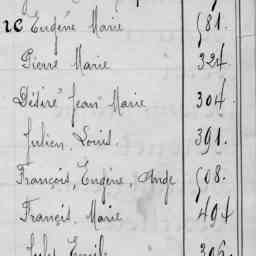 re Eugène Marie 581.
Pierre Marie 324.
Désiré Jean Marie 304.
Julien Louis. 391.
François, Eugène, Ange 508.
François Marie 494
Jules Emile 396.